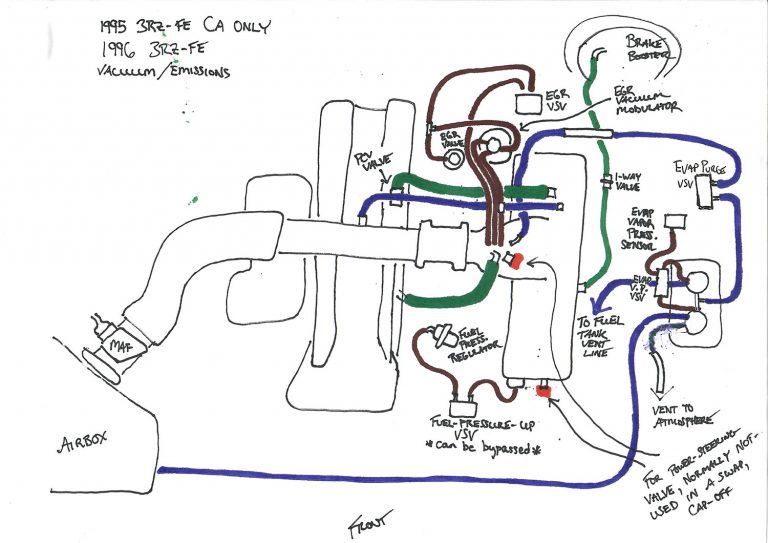 1995 3RZ-FE CA ONLY
1996 3RZ-FE
VACUUM/EMISSIONS
BRAKE
BOOSTER
EGR
VSV
EGR
VACUUM
MODULATOR
EGR
VALVE
PCV
VALVE
1-WAY
VALVE
EVAP PURGE
VSV
EVAP
VAPOR
PRESS.
SENSOR
EVAP
V.P.
VSV
TO FUEL
TANK
VENT
LINE
MAF
FUEL
PRESS.
REGULATOR
VENT TO
ATMOSPHERE
FUEL-PRESSURE-UP
VSV
*can be bypassed*
AIRBOX
FOR POWER-STEERING
VALVE, NORMALLY NOT-
USED IN A SWAP,
CAP-OFF
FRONT